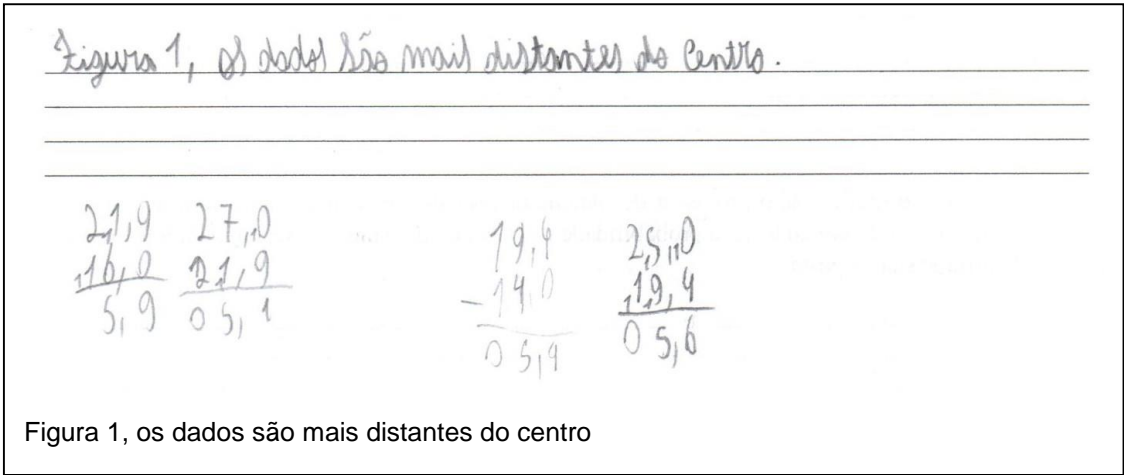 Figura 1, os dados são mais distantes do centro.
21,9 27,0 19,4 25,0
16,0 21,9 - 14,0 19,4
5,9 05,1 05,4 05,6
Figura 1, os dados são mais distantes do centro